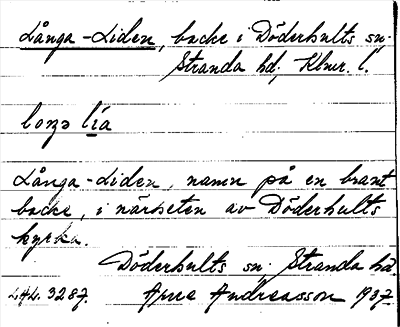 Långa-Liden, backe i Döderhults sn.
Stranda hd, Klmr. l.
loŋə lía
Långa-Liden, namn på en brant
backe, i närheten av Döderhults
kyrka.
Döderhults sn. Stranda hd.
LAL. 3287. Arne Andreasson 1937